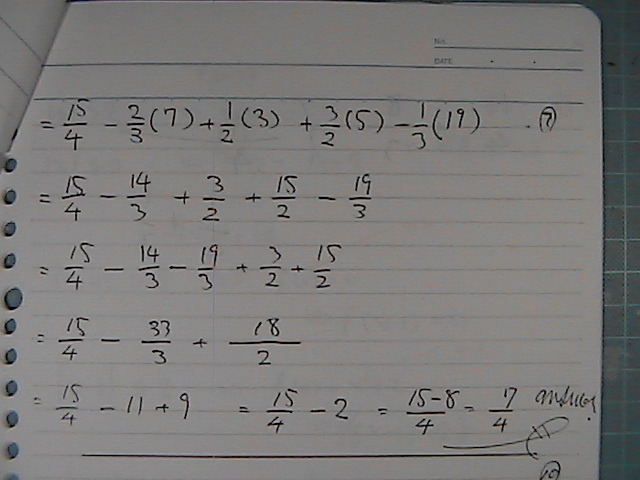 No.
DATE
= 15/4 - 2/3 (7) + 1/2 (3) + 3/2 (5) - 1/3 (19)
= 15/4 - 14/3 + 3/2 + 15/2 - 19/3
= 15/4 - 14/3 - 19/3 + 3/2 + 15/2
= 15/4 - 33/3 + 18/2
= 15/4 - 11 + 9 = 15/4 - 2 = 15-8/4 = 7/4 answer